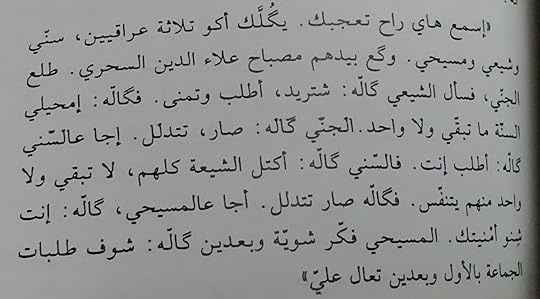 «إسمع هاي راح تعجبك. يگُلَّك أكو ثلاثة عراقيين، سنّي
وشيعي ومسيحي. وگع بيدهم مصباح علاء الدين السحري. طلع
الجنّي، فسأل الشيعي گالَه: شتريد، أطلب وتمنى. فگالَه: إمحيلي
السنّة ما تبقّي ولا واحد. الجنّي گالَه: صار، تتدلل. إجا عالسّني
گالَه: أطلب إنت. فالسّني گالَه: أكتل الشيعة كلهم، لا تبقي ولا
واحد منهم يتنفّس. فگالَه صار تتدلل. أجا عالمسيحي، گالَه: إنت
شِنو أمْنيتك. المسيحي فكّر شويّة وبعدين گالَه: شوف طلبات
الجماعة بالأول وبعدين تعال عليّ»